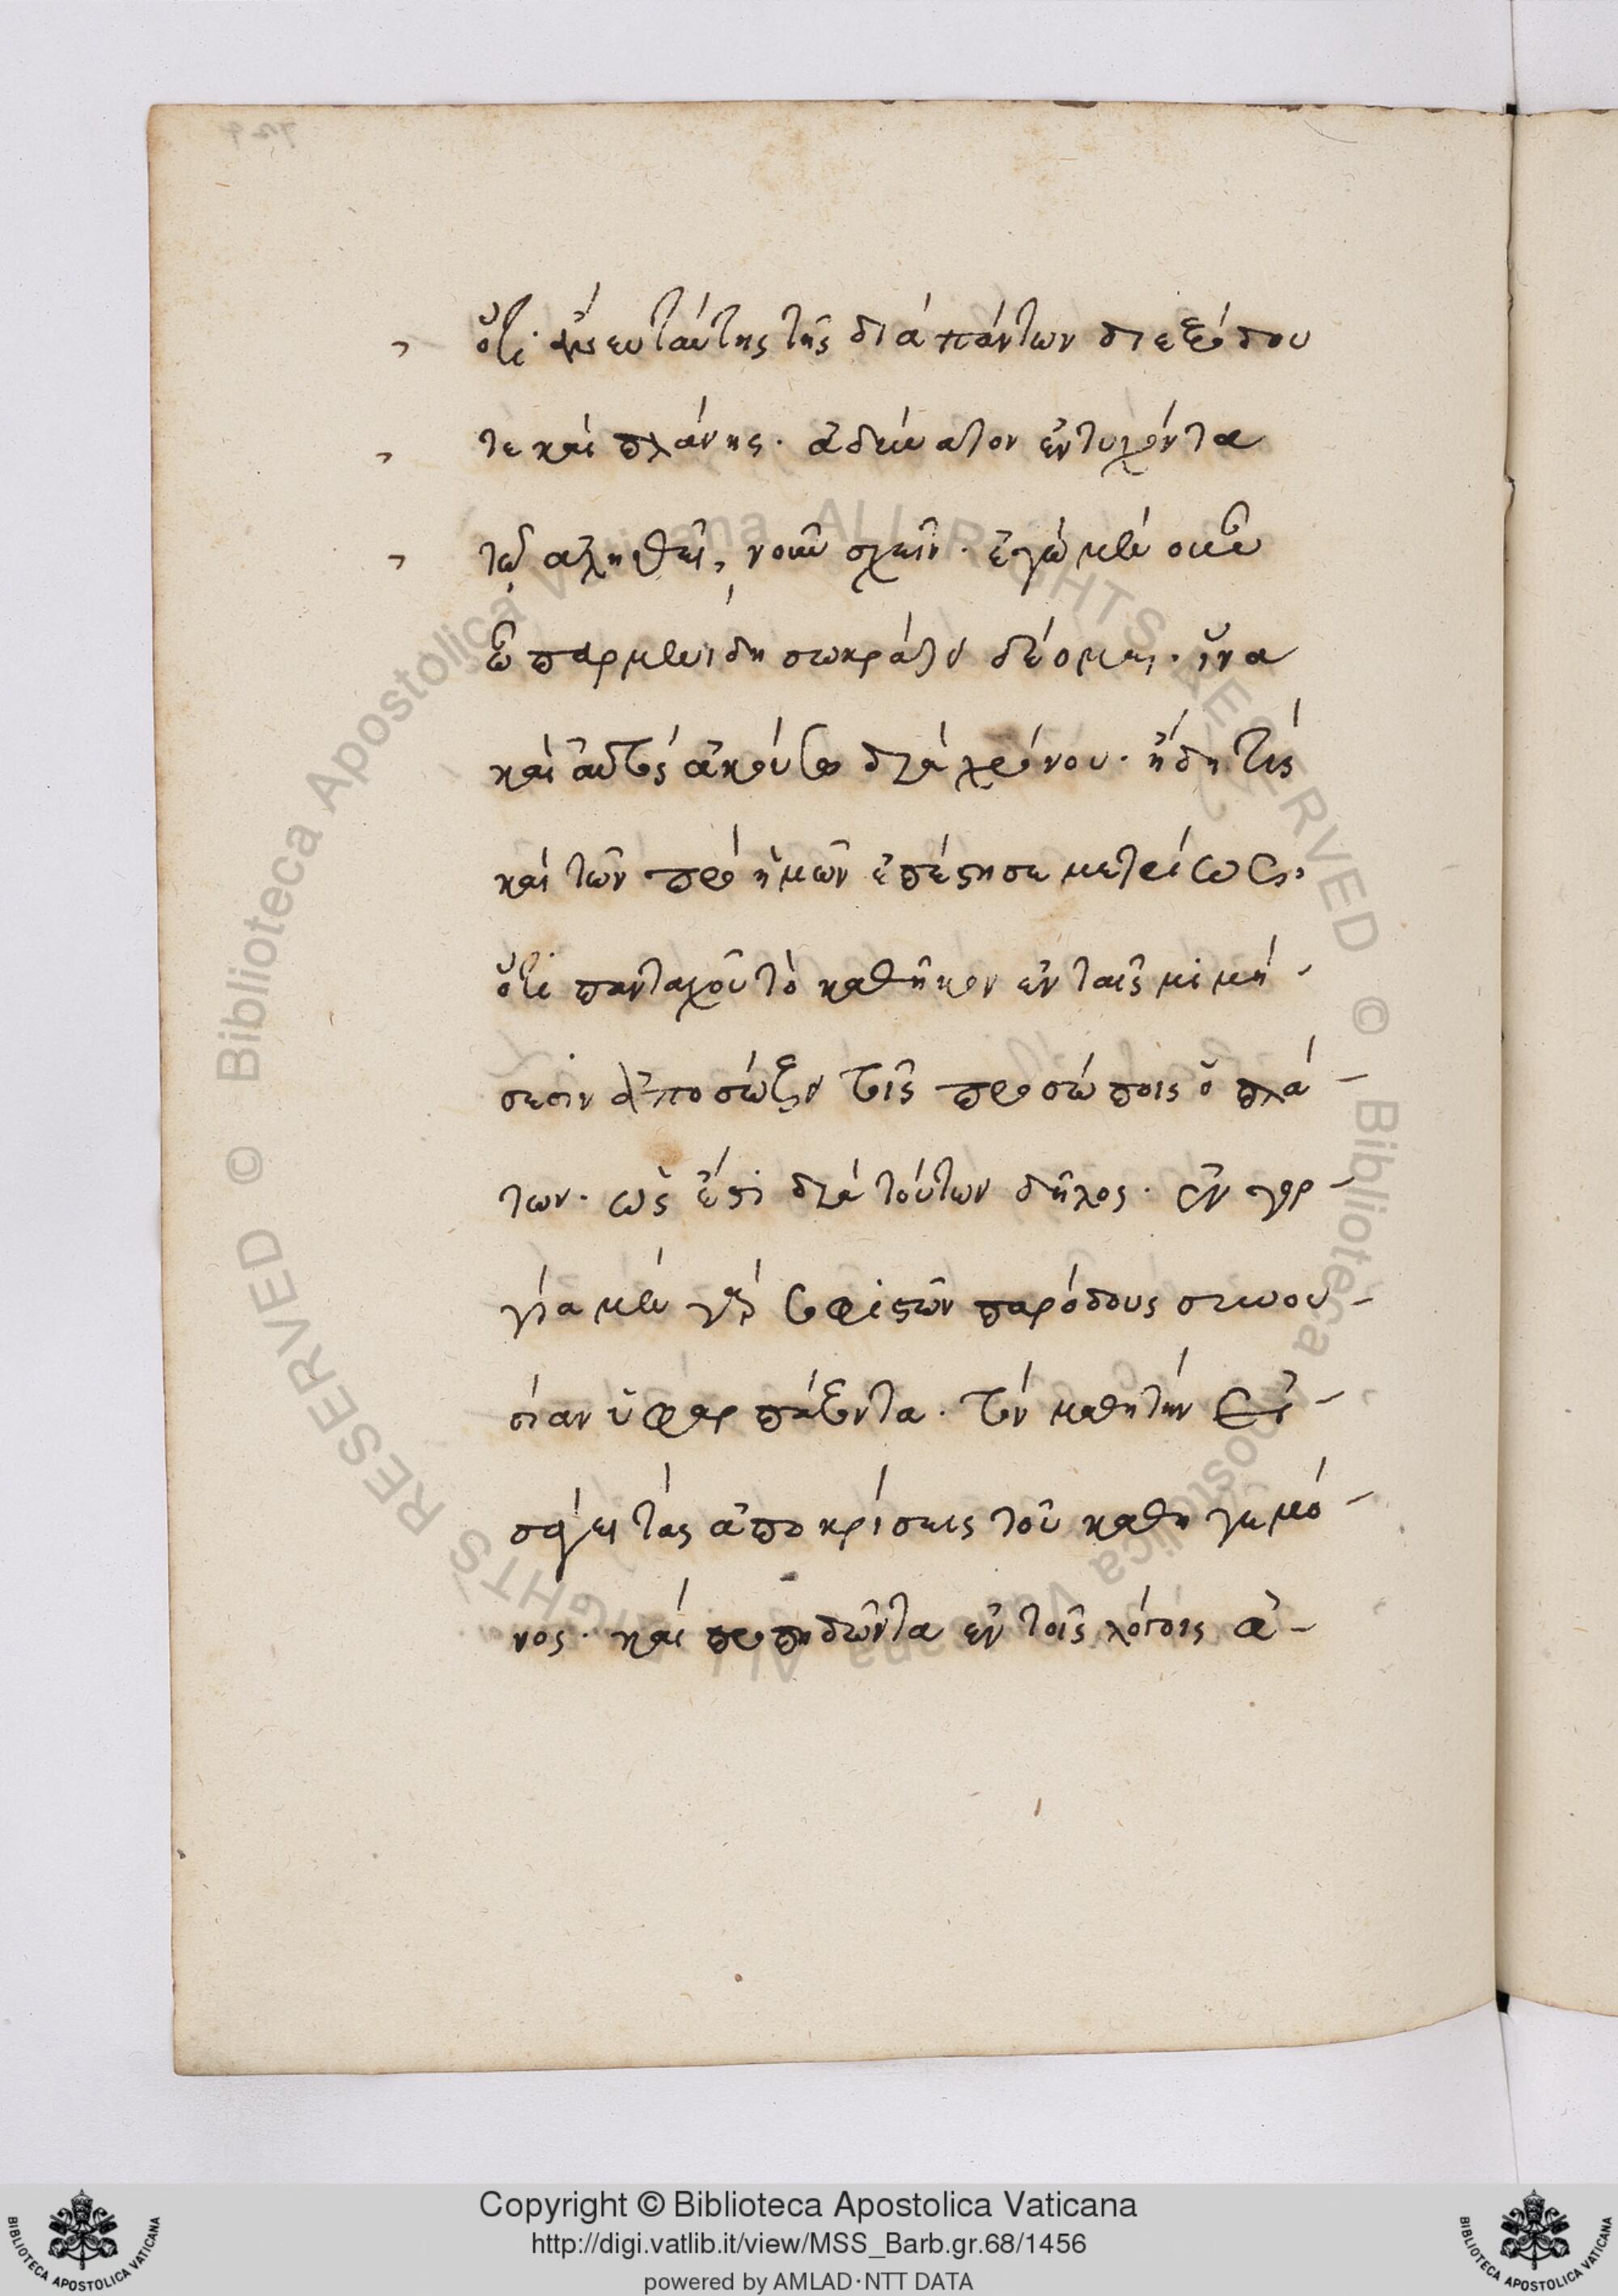 ὅτι ἄνευ ταύτης τῆς διὰ πάντων διεξόδου
τε καὶ πλάνης· ἀδύνατον ἐντυχόντα
τῷ ἀληθεῖ, νοῦν σχεῖν· ἐγὼ μὲν οὖν
ὦ παρμενίδη σωκράτει δέομαι· ἵνα
καὶ αὐτὸς ἀκούσω διὰ χρόνου· ἤδη τὶς
καὶ τῶν πρὸ ἡμῶν ἐπέστησε μετρίως,
ὅτι πανταχοῦ τὸ καθῆκον ἐν ταῖς μιμή-
σεσιν ἀποσώζειν τοῖς προσώποις ὁ πλά-
των· ὡς ἔστι διὰ τούτων δῆλος· ἐν γορ-
γία μὲν γὰρ σοφιστῶν παρόδους συνου-
σίαν ὑφαρπάσοντα· τὸν μαθητὴν εἰ-
σάγει τὰς ἀποκρίσεις τοῦ καθηγεμό-
νος· καὶ προπηδῶντα ἐν τοῖς λόγοις ἀ-
Copyright © Biblioteca Apostolica Vaticana
http://digi.vatlib.it/view/MSS_Barb.gr.68/1456
powered by AMLAD·NTT DATA